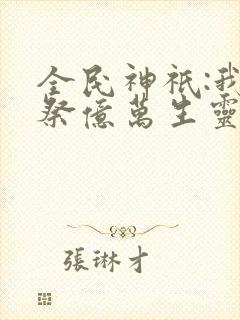 全民神祇:我
祭億萬生靈
張琳才